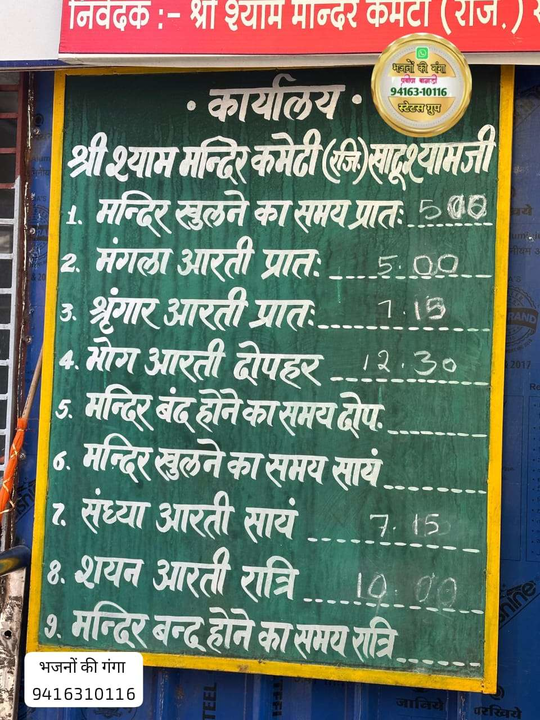 निवेदक :- श्री श्याम मन्दिर कमेटी (राज.)
भजनों की गंगा
94163-10116
स्टेटस ग्रुप
• कार्यालय •
श्री श्याम मन्दिर कमेटी (रजि.) खाटूश्यामजी
1. मन्दिर खुलने का समय प्रातः 5 00
2. मंगला आरती प्रातः 5.00
3. श्रृंगार आरती प्रातः 7.15
4. भोग आरती दोपहर 12.30
5. मन्दिर बंद होने का समय दोप.
6. मन्दिर खुलने का समय सायं
7. संध्या आरती सायं 7.15
8. शयन आरती रात्रि 10.00
9. मन्दिर बन्द होने का समय रात्रि
भजनों की गंगा
9416310116